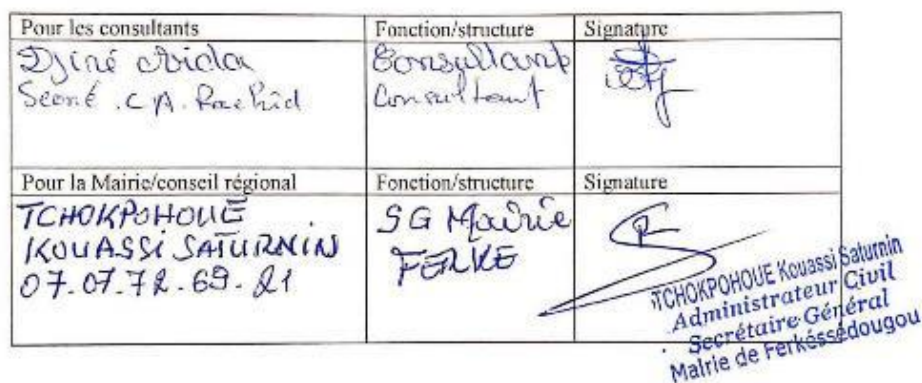 Pour les consultants Fonction/structure Signature
Djiré Aïda Consultant
Seoné .C A. Rachid Consultant
Pour la Mairie/conseil régional Fonction/structure Signature
TCHOKPOHOUE SG Mairie
KOUASSI SATURNIN FERKE
07.07.72.69.21
TCHOKPOHOUE Kouassi Saturnin
Administrateur Civil
Secrétaire Général
Mairie de Ferkéssédougou